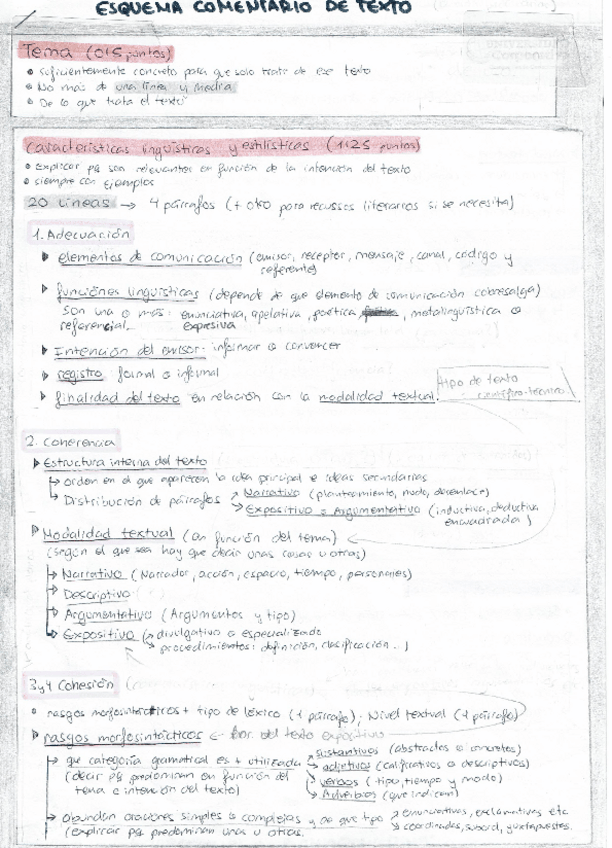 ESQUEMA COMENTARIO DE TEXTO
Tema (0'5 puntos)
• Suficientemente concreto para que solo trate de ese texto
• No más de una línea y media
• De lo que trata el texto
Características lingüísticas y estilísticas (1'25 puntos)
• Explicar pq son relevantes en función de la intención del texto
• siempre con ejemplos
20 líneas → 4 párrafos (+ otro para recursos literarios si se necesita)
1. Adecuación
▸ elementos de comunicación (emisor, receptor, mensaje, canal, código y
referente)
▸ funciones lingüísticas (depende de que elemento de comunicación sobresalga)
Son una o más: enunciativa, apelativa, poética, metalingüística o
referencial, expresiva
▸ Intención del emisor: informar o convencer
▸ registro: formal o informal
▸ finalidad del texto en relación con la modalidad textual.
tipo de texto
científico-técnico.
2. Coherencia
▸ Estructura interna del texto
↳ orden en el que aparecen la idea principal e ideas secundarias
↳ Distribución de párrafos ↗ Narrativo (planteamiento, nudo, desenlace)
↘ Expositivo o Argumentativo (inductiva, deductiva
encuadrada)
▸ Modalidad textual (en función del tema)
(según el que sea hay que decir unas cosas u otras)
↳ Narrativo (Narrador, acción, espacio, tiempo, personajes)
↳ Descriptivo
↳ Argumentativo (Argumentos y tipo)
↳ Expositivo (↗ divulgativo o especializado
↘ procedimientos: definición, clasificación...)
3y4 Cohesión
• rasgos morfosintácticos + tipo de léxico (1 párrafo), Nivel textual (1 párrafo)
▸ rasgos morfosintácticos ← del texto expositivo
↳ que categoría gramatical es + utilizada → sustantivos (abstractos o concretos)
(decir pq predominan en función del → adjetivos (calificativos o descriptivos)
tema e intención del texto) → verbos (tipo, tiempo y modo)
→ Adverbios (que indican)
↳ abundan oraciones simples o complejas y de que tipo ↗ enunciativas, exclamativas etc
(explicar pq predominan unas u otras. ↘ coordinadas, subord, yuxtapuestas.